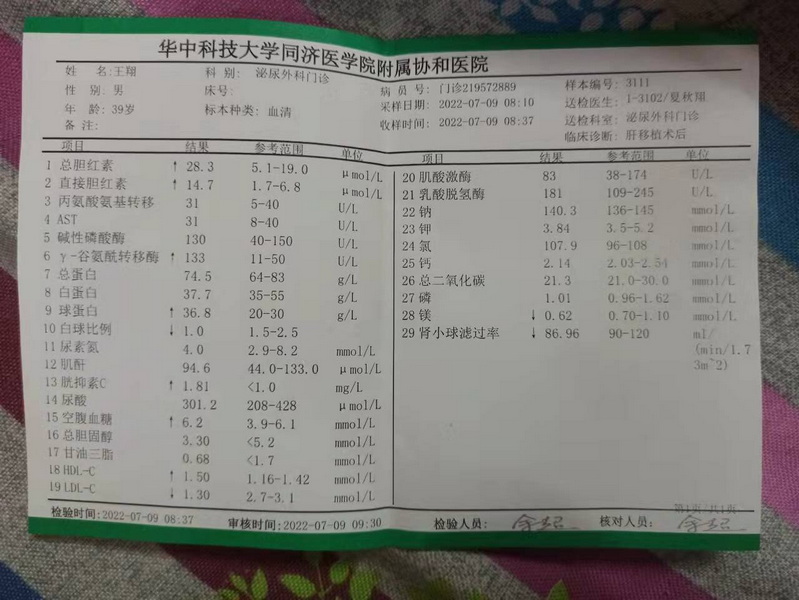 华中科技大学同济医学院附属协和医院
姓 名:王翔 科 别: 泌尿外科门诊 病 员 号: 门诊219572889 样本编号: 3111
性 别: 男 床号: 采样日期: 2022-07-09 08:10 送检医生: 1-3102/夏秋翔
年 龄: 39岁 标本种类: 血清 收样时间: 2022-07-09 08:37 送检科室: 泌尿外科门诊
备 注: 临床诊断: 肝移植术后
项目 结果 参考范围 单位
1 总胆红素 ↑ 28.3 5.1-19.0 μmol/L
2 直接胆红素 ↑ 14.7 1.7-6.8 μmol/L
3 丙氨酸氨基转移 31 5-40 U/L
4 AST 31 8-40 U/L
5 碱性磷酸酶 130 40-150 U/L
6 γ-谷氨酰转移酶 ↑ 133 11-50 U/L
7 总蛋白 74.5 64-83 g/L
8 白蛋白 37.7 35-55 g/L
9 球蛋白 ↑ 36.8 20-30 g/L
10 白球比例 ↓ 1.0 1.5-2.5
11 尿素氮 4.0 2.9-8.2 mmol/L
12 肌酐 94.6 44.0-133.0 μmol/L
13 胱抑素C ↑ 1.81 <1.0 mg/L
14 尿酸 301.2 208-428 μmol/L
15 空腹血糖 ↑ 6.2 3.9-6.1 mmol/L
16 总胆固醇 3.30 <5.2 mmol/L
17 甘油三脂 0.68 <1.7 mmol/L
18 HDL-C ↑ 1.50 1.16-1.42 mmol/L
19 LDL-C ↓ 1.30 2.7-3.1 mmol/L
项目 结果 参考范围 单位
20 肌酸激酶 83 38-174 U/L
21 乳酸脱氢酶 181 109-245 U/L
22 钠 140.3 136-145 mmol/L
23 钾 3.84 3.5-5.2 mmol/L
24 氯 107.9 96-108 mmol/L
25 钙 2.14 2.03-2.54 mmol/L
26 总二氧化碳 21.3 21.0-30.0 mmol/L
27 磷 1.01 0.96-1.62 mmol/L
28 镁 ↓ 0.62 0.70-1.10 mmol/L
29 肾小球滤过率 ↓ 86.96 90-120 ml/
(min/1.7
3m^2)
第1页/共1页
检验时间:2022-07-09 08:37 审核时间:2022-07-09 09:30 检验人员: 核对人员: